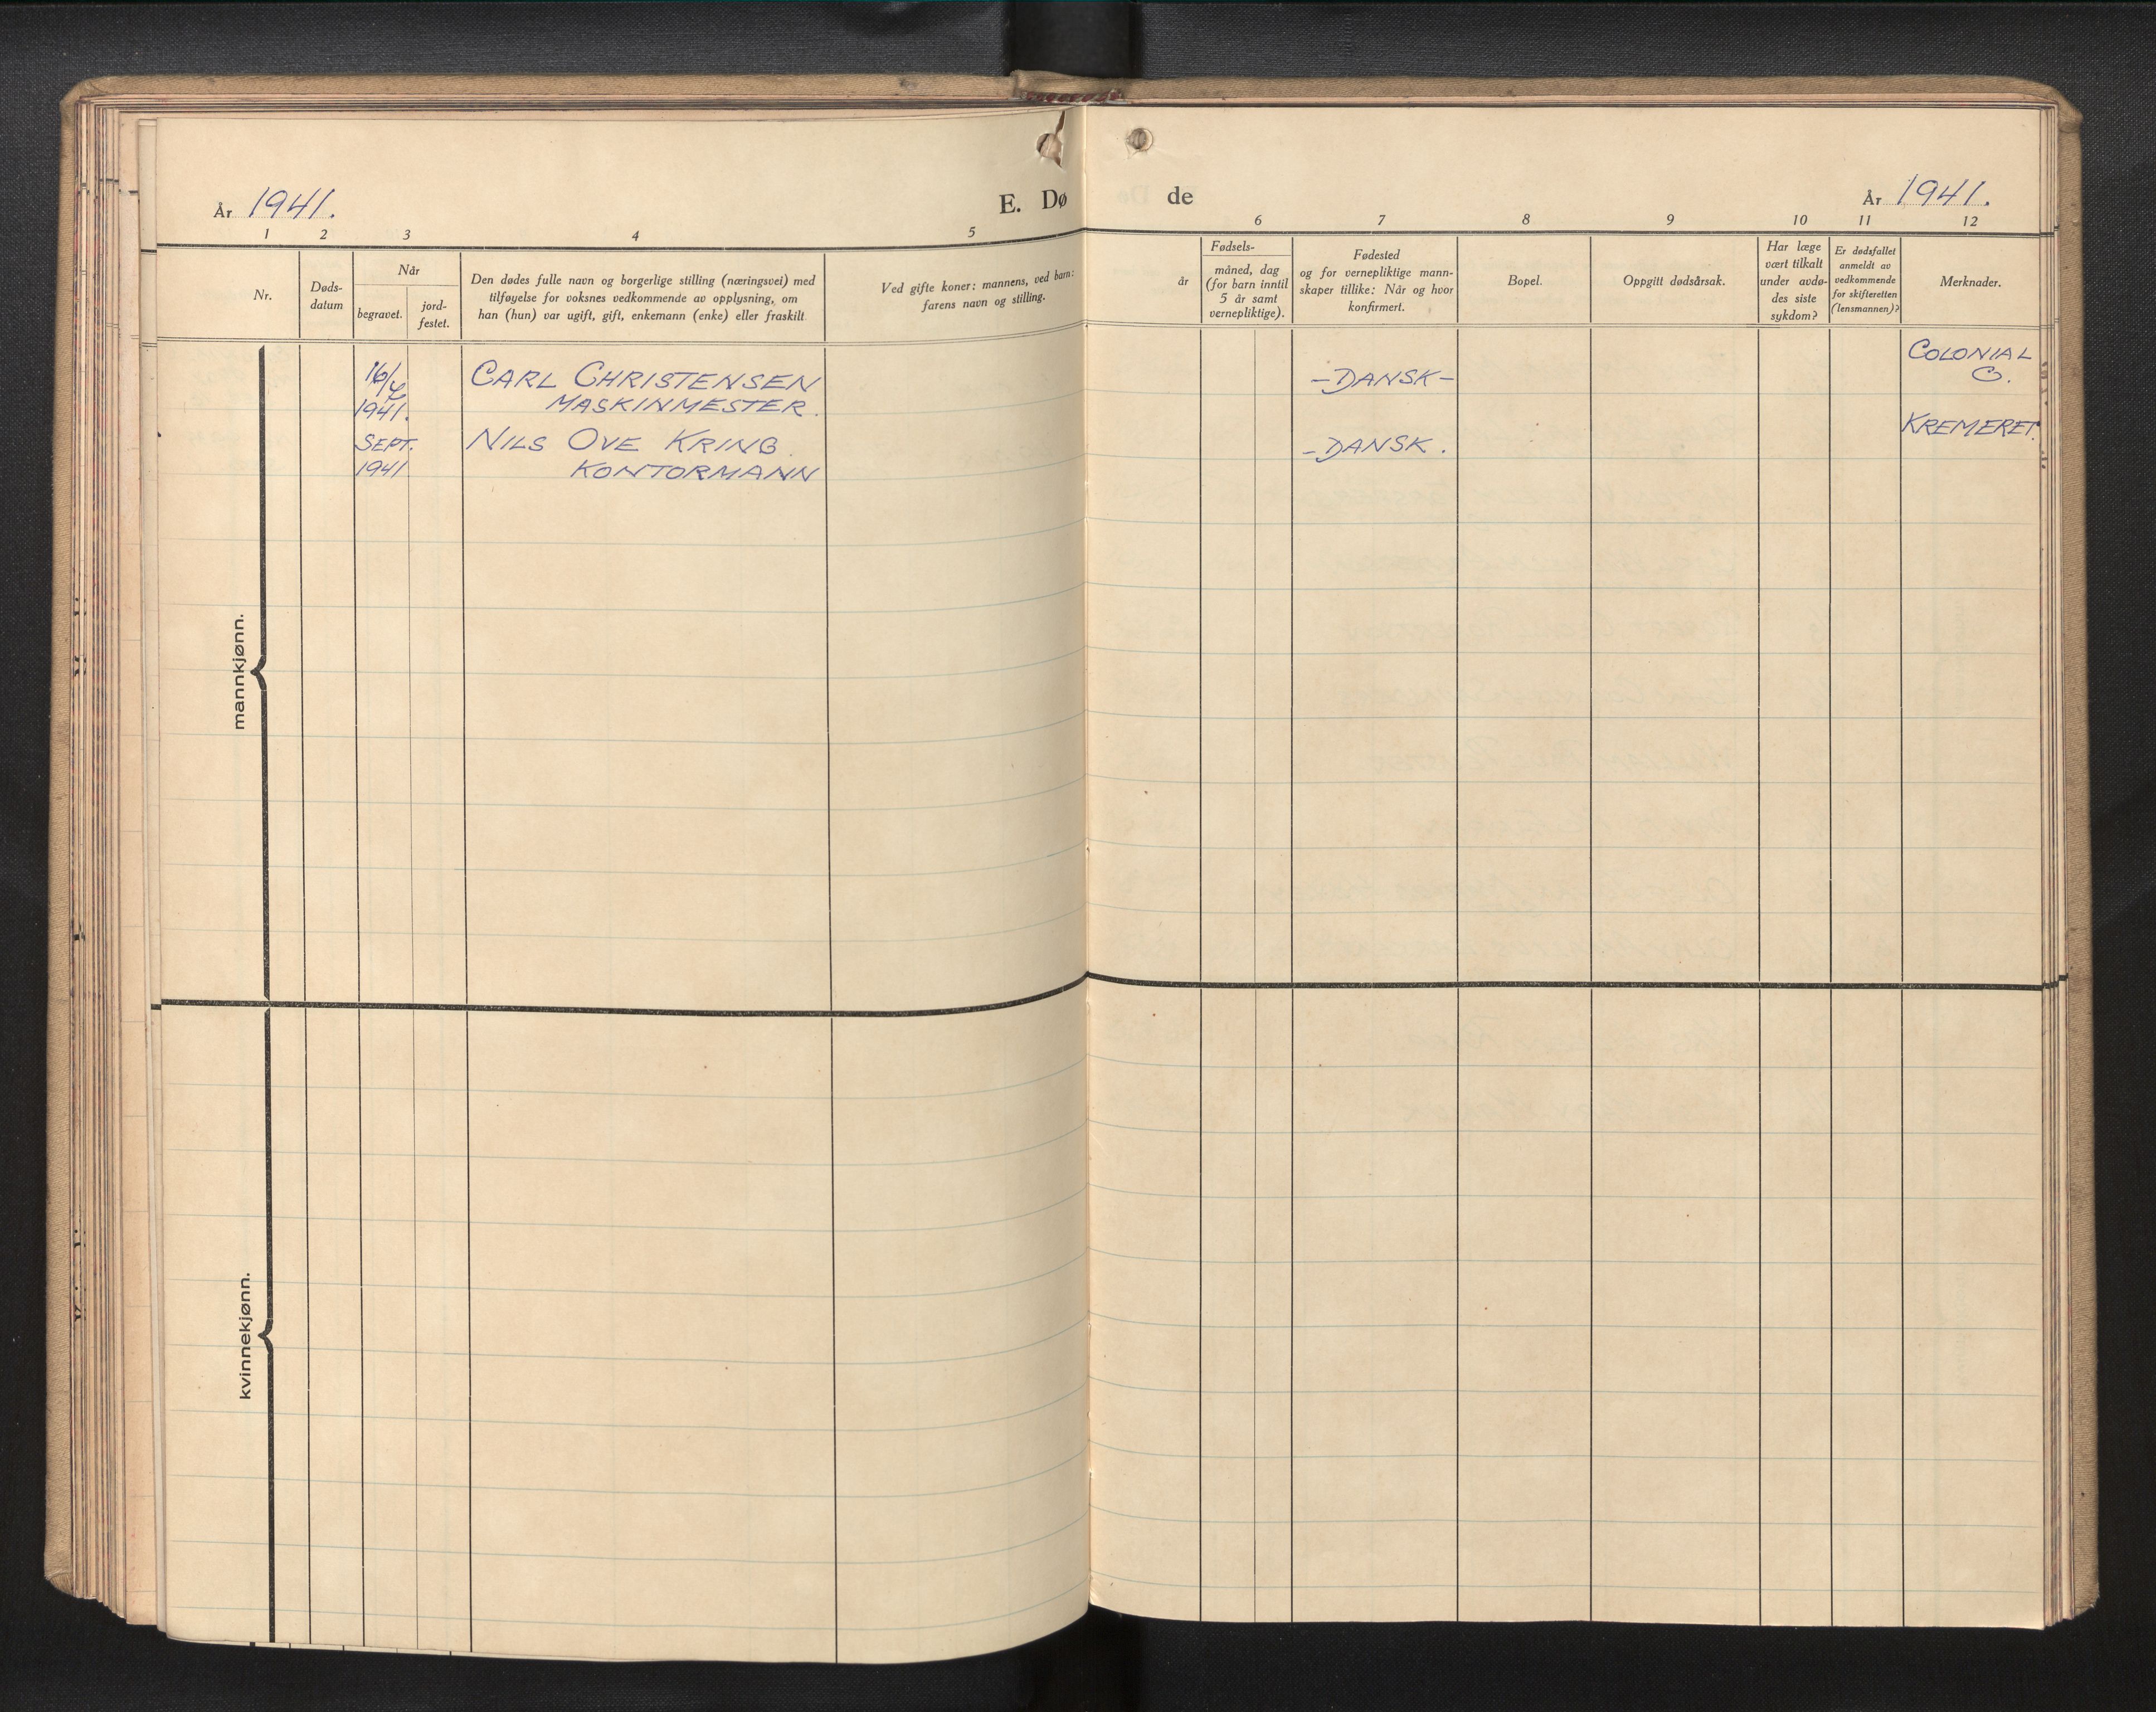 År 1941.
E. Dø
de
År 1941.
1 2 3 4 5
6 7 8 9 10 11 12
Nr.
Døds-
datum
Når
begravet.
jord-
festet.
Den dødes fulle navn og borgerlige stilling (næringsvei) med
tilføyelse for voksnes vedkommende av opplysning, om
han (hun) var ugift, gift, enkemann (enke) eller fraskilt
Ved gifte koner: mannens, ved barn:
farens navn og stilling.
Fødsels-
år
måned, dag
(for barn inntil
5 år samt
vernepliktige).
Fødested
og for vernepliktige mann-
skaper tillike: Når og hvor
konfirmert.
Bopel.
Oppgitt dødsårsak.
Har læge
vært tilkalt
under avdø-
des siste
sykdom?
Er dødsfallet
anmeldt av
vedkommende
for skifteretten
(lensmannen)?
Merknader.
mannkjønn.
16/
1941.
CARL CHRISTENSEN
MASKINMESTER.
-DANSK-
COLONIAL
CO.
SEPT.
1941
NILS OVE KRING.
KONTORMANN
-DANSK.
KREMERET.
kvinnekjønn.